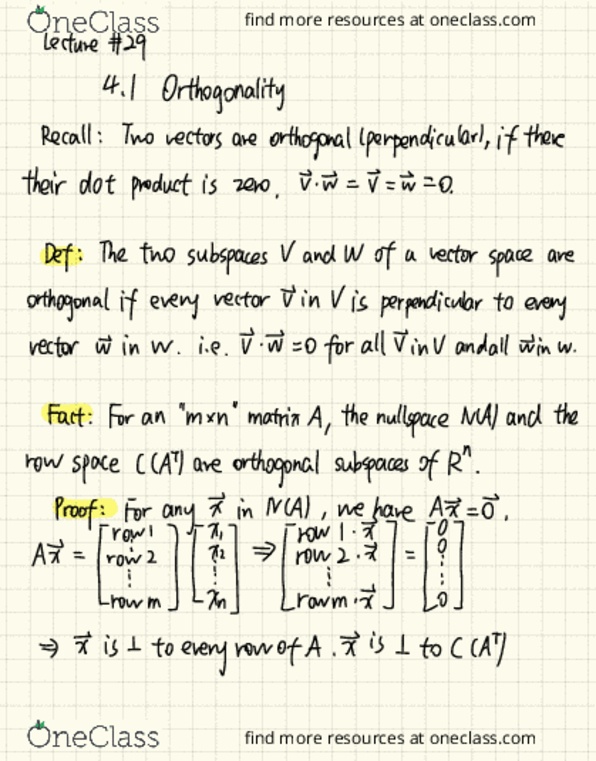 OneClass find more resources at oneclass.com
Lecture #29
4.1 Orthogonality
Recall: Two vectors are orthogonal (perpendicular), if there
their dot product is zero, v⃗·w⃗ = v⃗ = w⃗ = 0.
Def: The two subspaces V and W of a vector space are
orthogonal if every vector v⃗ in V is perpendicular to every
vector w⃗ in W. i.e. v⃗·w⃗ = 0 for all v⃗ in V and all w⃗ in W.
Fact: For an "m×n" matrix A, the nullspace N(A) and the
row space C(Aᵀ) are orthogonal subspaces of Rⁿ.
Proof: For any x⃗ in N(A), we have Ax⃗ = 0⃗.
Ax⃗ = [row 1 row 2 ⋮ row m] [x₁ x₂ ⋮ xₙ] ⇒ [row 1·x⃗ row 2·x⃗ ⋮ row m·x⃗] = [0 0 ⋮ 0]
⇒ x⃗ is ⊥ to every row of A. x⃗ is ⊥ to C(Aᵀ)
OneClass find more resources at oneclass.com